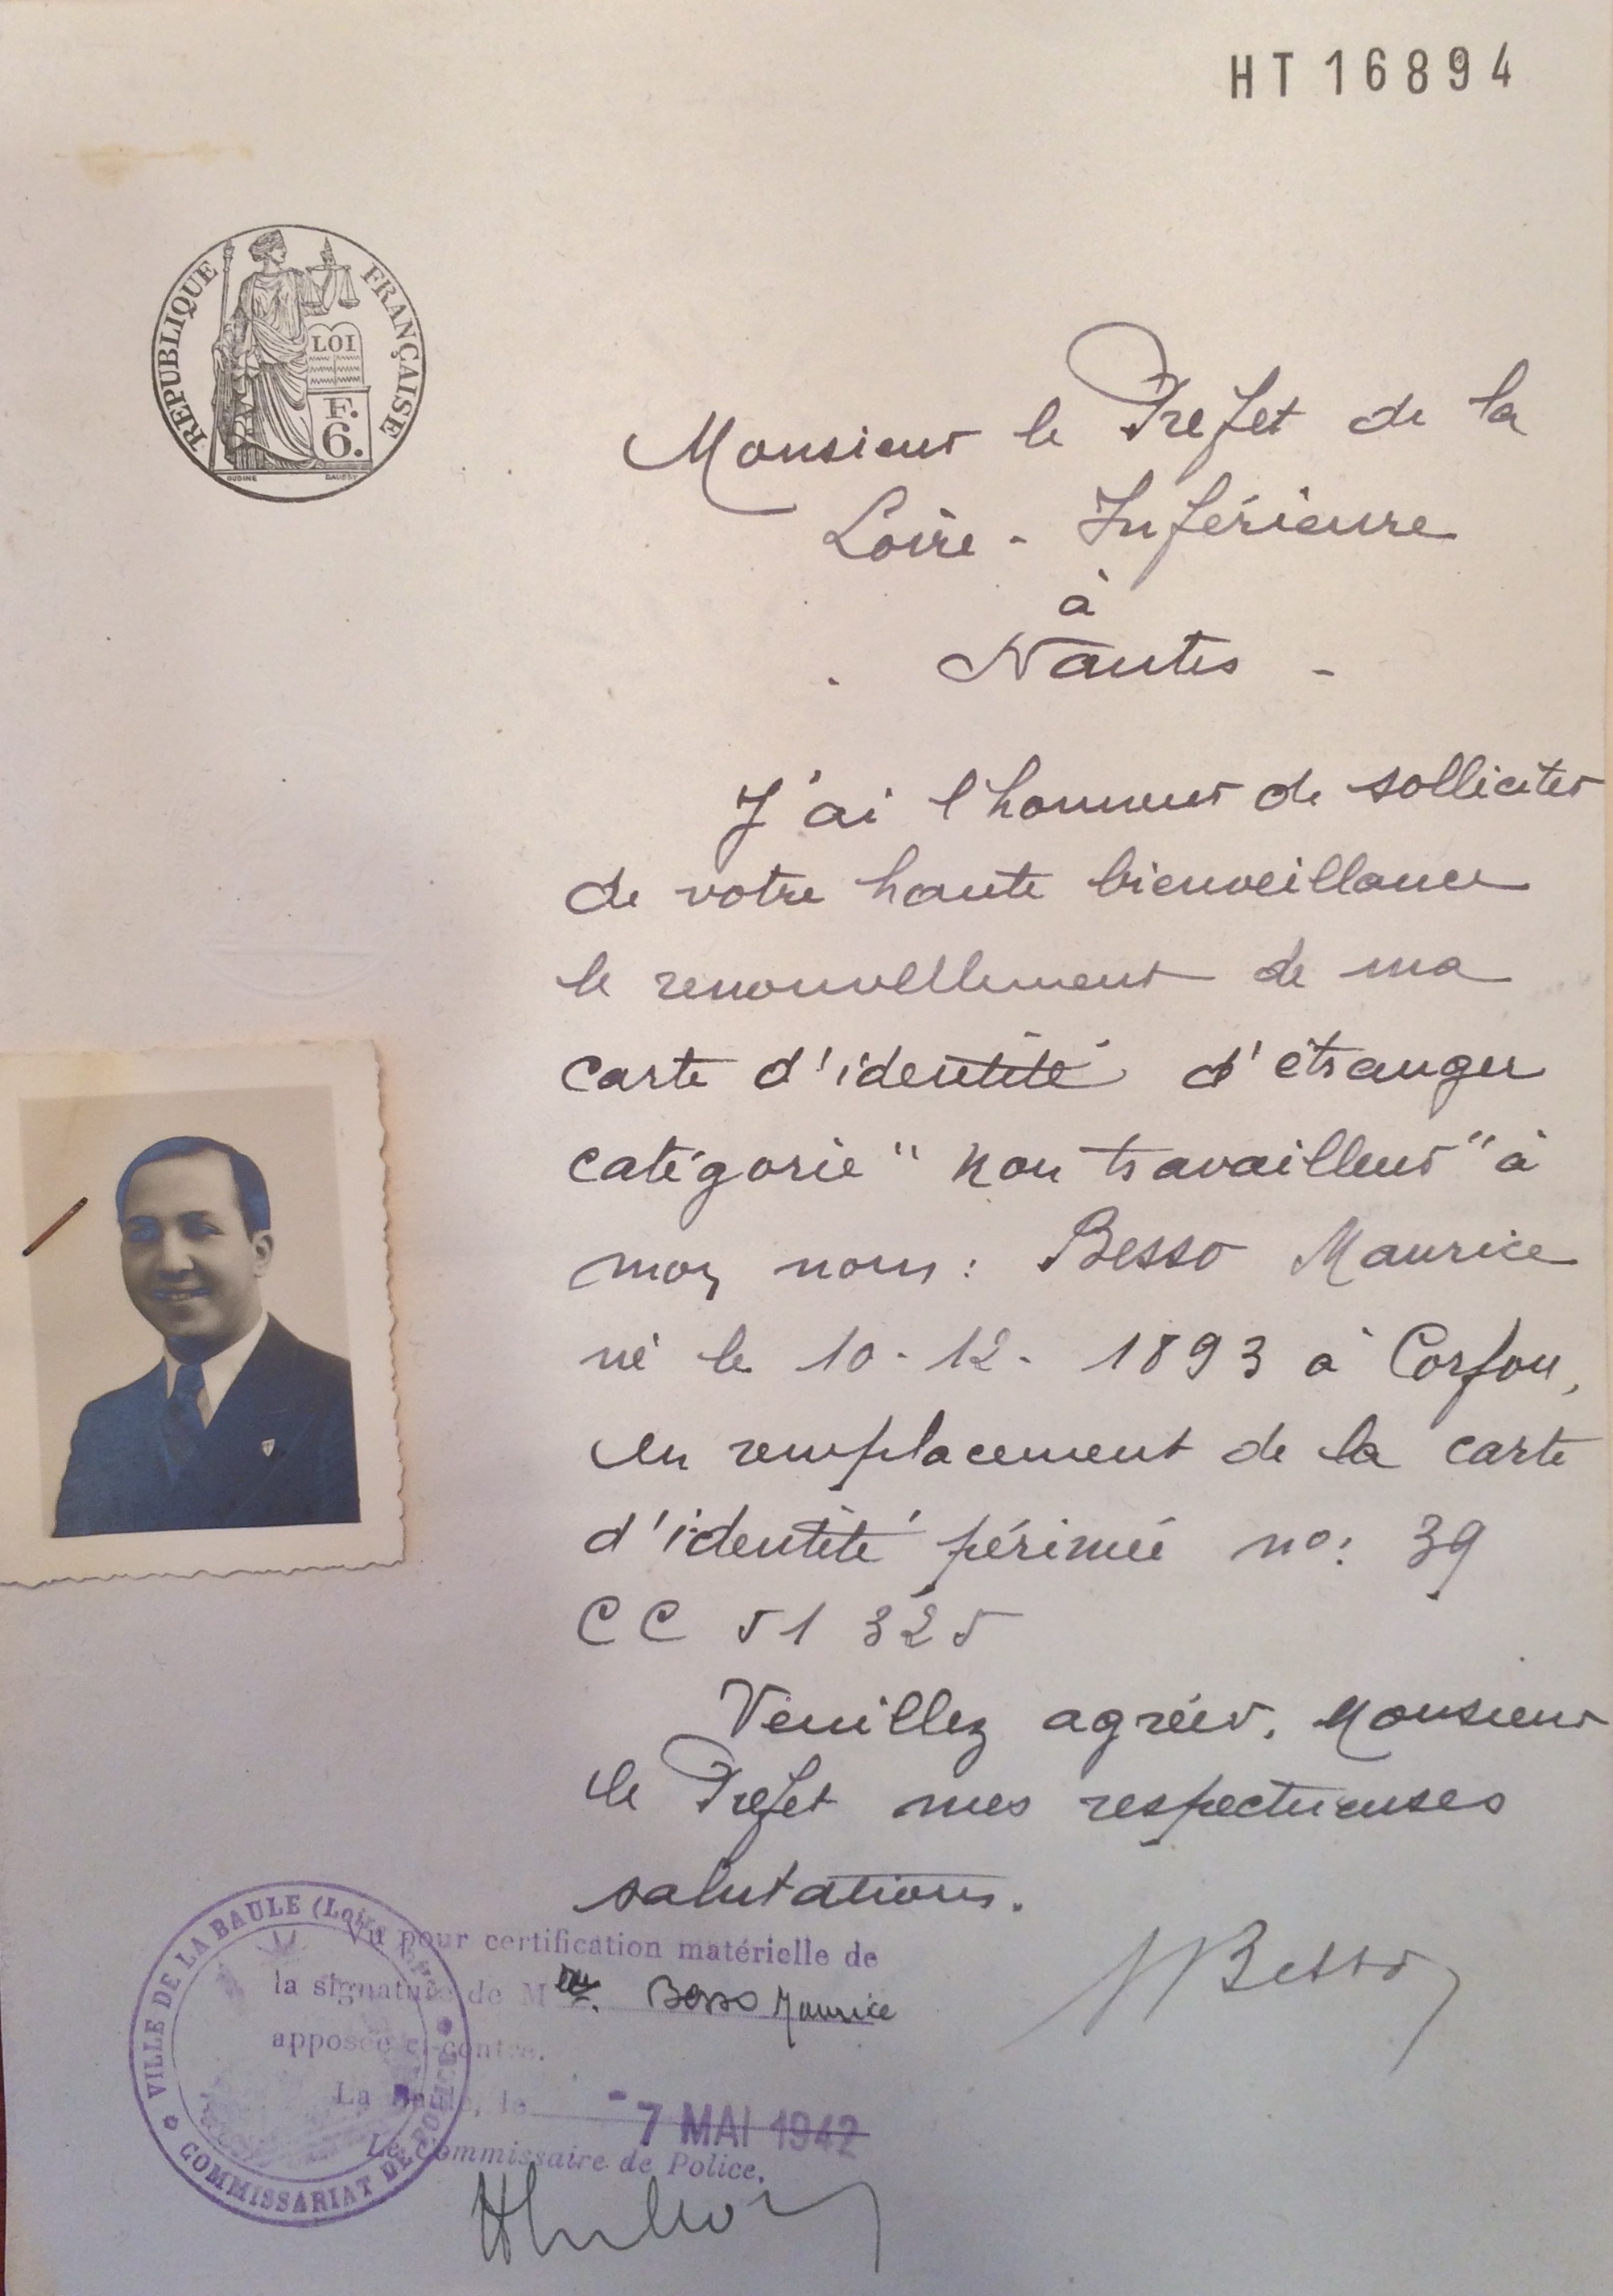 HT16894
REPUBLIQUE FRANÇAISE
LOI
F.
6.
OUDINE
Monsieur le Prefet de la
Loire - Inférieure
à
Nantes -
J'ai l'honneur de solliciter
de votre haute bienveillance
le renouvellement de ma
carte d'identité d'étranger
catégorie "non travailleur" à
mon nom : Besso Maurice
né le 10-12-1893 à Corfou,
en remplacement de la carte
d'identité périmée no: 39
CC 51 325
Veuillez agréer, Monsieur
le Prefet mes respectueuses
salutations.
Besso
VILLE DE LA BAULE (Loire
COMMISSARIAT DE POLICE
Vu pour certification matérielle de
la signature de M Besso Maurice
apposée ci-contre.
La Baule, le - 7 MAI 1942
Le Commissaire de Police,